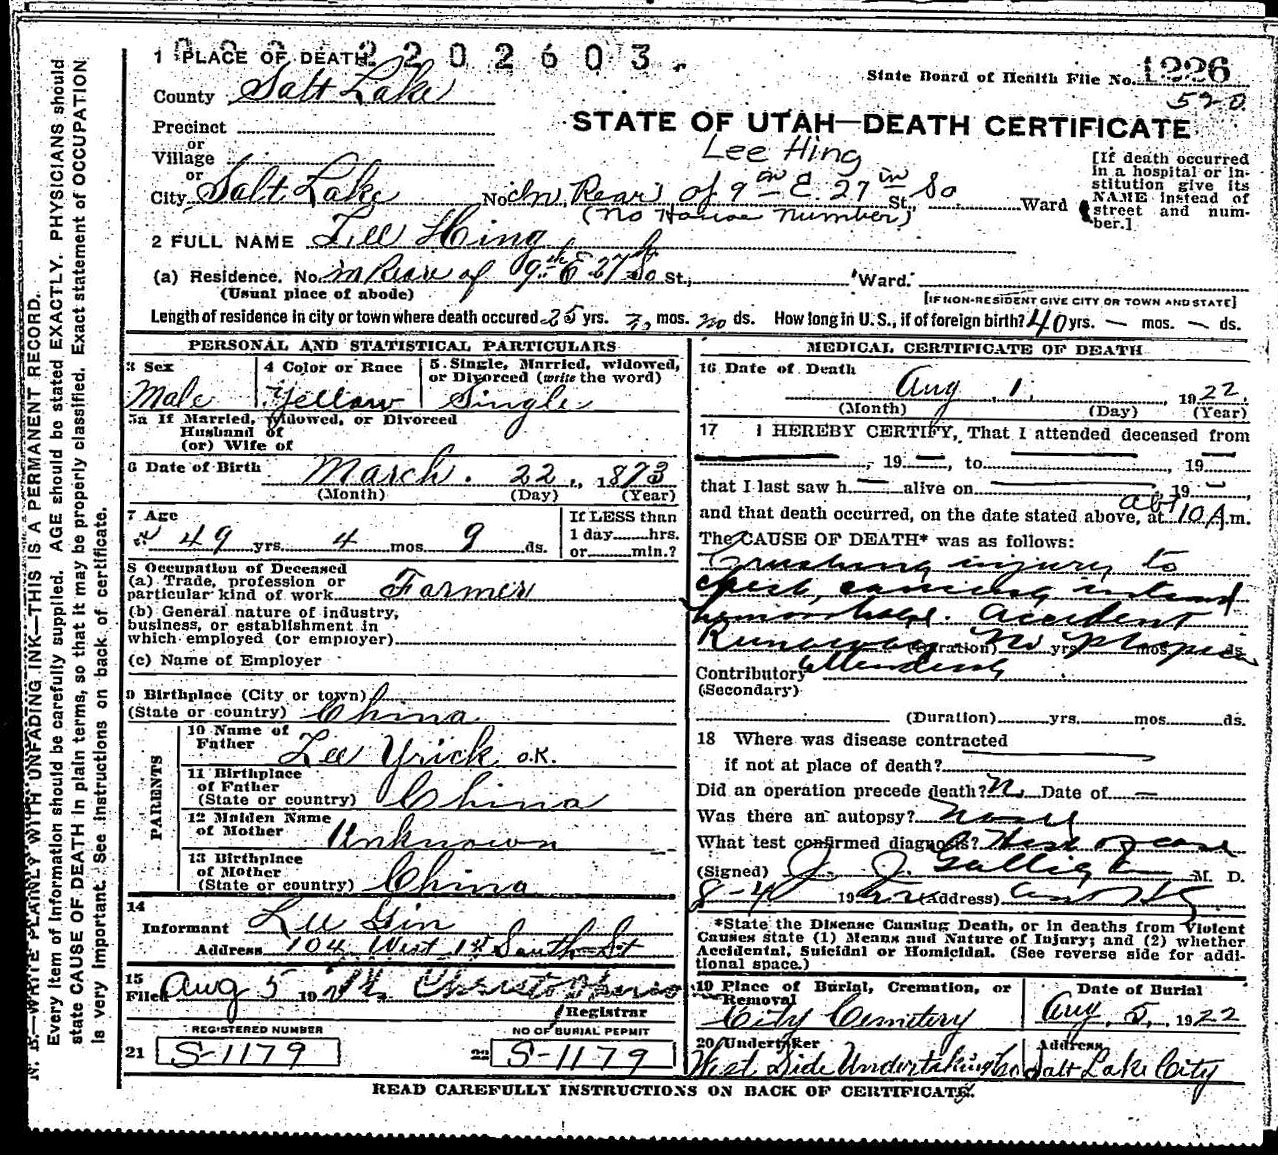 2202603
1 PLACE OF DEATH
State Board of Health File No. 1226
County Salt Lake
520
STATE OF UTAH—DEATH CERTIFICATE
Precinct
or
Village
or
Lee Hing
City Salt Lake No. In Rear of 9th E. 27th So St., Ward
(No House Number)
[If death occurred in a hospital or institution give its NAME instead of street and number.]
2 FULL NAME Lee Hing
(a) Residence. No. in Rear of 9th E 27th So St., Ward.
(Usual place of abode)
[IF NON-RESIDENT GIVE CITY OR TOWN AND STATE]
Length of residence in city or town where death occured 25 yrs. no mos. no ds. How long in U.S., if of foreign birth? 40 yrs. — mos. — ds.
PERSONAL AND STATISTICAL PARTICULARS
3 Sex
Male
4 Color or Race
Yellow
5. Single, Married, widowed, or Divorced (write the word)
Single
5a If Married, widowed, or Divorced
Husband of
(or) Wife of
6 Date of Birth March. 22., 1873
(Month) (Day) (Year)
7 Age
49 yrs. 4 mos. 9 ds.
If LESS than
1 day......hrs.
or......min.?
8 Occupation of Deceased
(a) Trade, profession or
particular kind of work Farmer
(b) General nature of industry,
business, or establishment in
which employed (or employer)
(c) Name of Employer
9 Birthplace (City or town)
(State or country) China
PARENTS
10 Name of
Father Lee Yrick O.K.
11 Birthplace
of Father
(State or country) China
12 Maiden Name
of Mother Unknown
13 Birthplace
of Mother
(State or country) China
14
Informant Lee Gin
Address 104 West 1st South St
15
Filed Aug 5 19
Registrar
REGISTERED NUMBER
21 S-1179
NO OF BURIAL PEPMIT
22 S-1179
MEDICAL CERTIFICATE OF DEATH
16 Date of Death
Aug. 1. 1922.
(Month) (Day) (Year)
17 I HEREBY CERTIFY, That I attended deceased from
—, 19 —, to —, 19 —
that I last saw h — alive on —, 19 —,
and that death occurred, on the date stated above, at abt 10 A.m.
The CAUSE OF DEATH* was as follows:
Crushing injury to
chest, causing internal
hemorrhage. Accident
Runaway No physician
(Duration) yrs. mos. ds.
attending
Contributory
(Secondary)
(Duration) yrs. mos. ds.
18 Where was disease contracted
if not at place of death?
Did an operation precede death? No. Date of —
Was there an autopsy? None
What test confirmed diagnosis? Hist of case
(Signed) J. J. Galligan M. D.
8-4 1922 (Address)
*State the Disease Causing Death, or in deaths from Violent
Causes state (1) Means and Nature of Injury; and (2) whether
Accidental, Suicidal or Homicidal. (See reverse side for addi-
tional space.)
19 Place of Burial, Cremation, or
Removal
City Cemetery
Date of Burial
Aug. 5., 1922
20 Undertaker
West Side Undertaking Co
Address
Salt Lake City
READ CAREFULLY INSTRUCTIONS ON BACK OF CERTIFICATE.
N. B.—WRITE PLAINLY WITH UNFADING INK—THIS IS A PERMANENT RECORD.
Every item of information should be carefully supplied. AGE should be stated EXACTLY. PHYSICIANS should
state CAUSE OF DEATH in plain terms, so that it may be properly classified. Exact statement of OCCUPATION
is very important. See instructions on back of certificate.